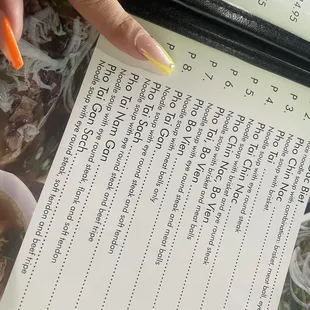 14.95
95
2. Biet
noodle soup with combination: brisket, meat ball, eye
3. Chin Nac
Noodle soup with brisket
4. Pho Tai
P 5. Pho Tai Chin Nac
Noodle soup with brisket and eye round steak
P 6. Pho Chin Nac, Bo Vien
Noodle soup with brisket and meat balls
P 7. Pho Tai, Bo Vien
Noodle soup with eye round steak and meat balls
P 8. Pho Bo Vien
Noodle soup with meat balls only
Pho Tai Gan
Noodle soup with eye round steak and soft tendon
Pho Tai Sach
Noodle soup with eye round steak and beef tripe
Pho Tai Nam Gan
Noodle soup with eye round steak, flank and soft tendon
Pho Tai Gan Sach
Noodle soup with eye round steak, soft tendon and beef tripe